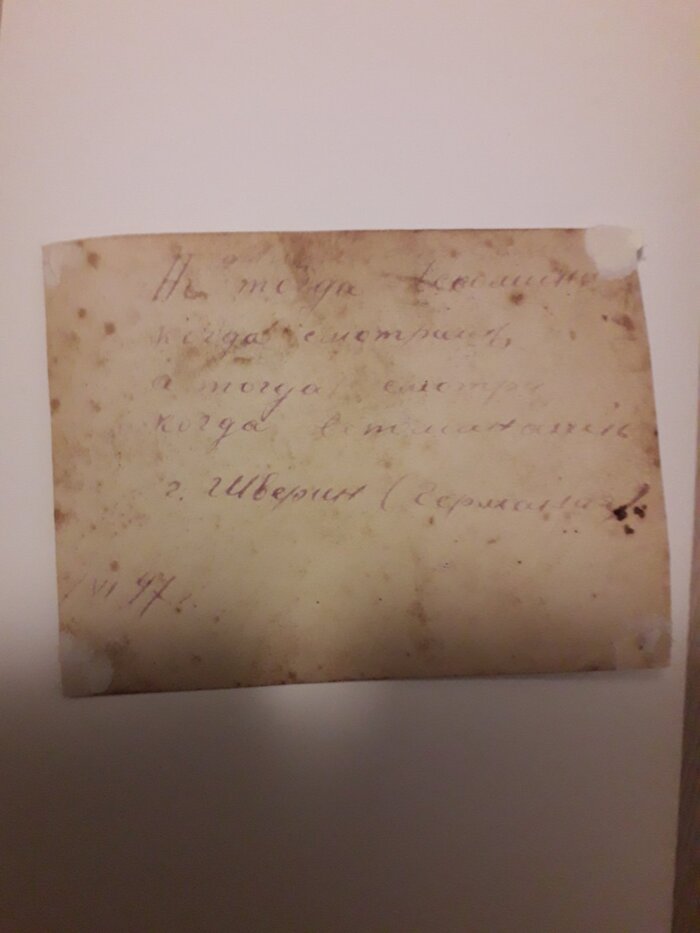 Не тогда вспомина
когда смотришь,
а тогда смотри
когда вспоминаешь
г. Шверин (Германия)
VI 47 г.